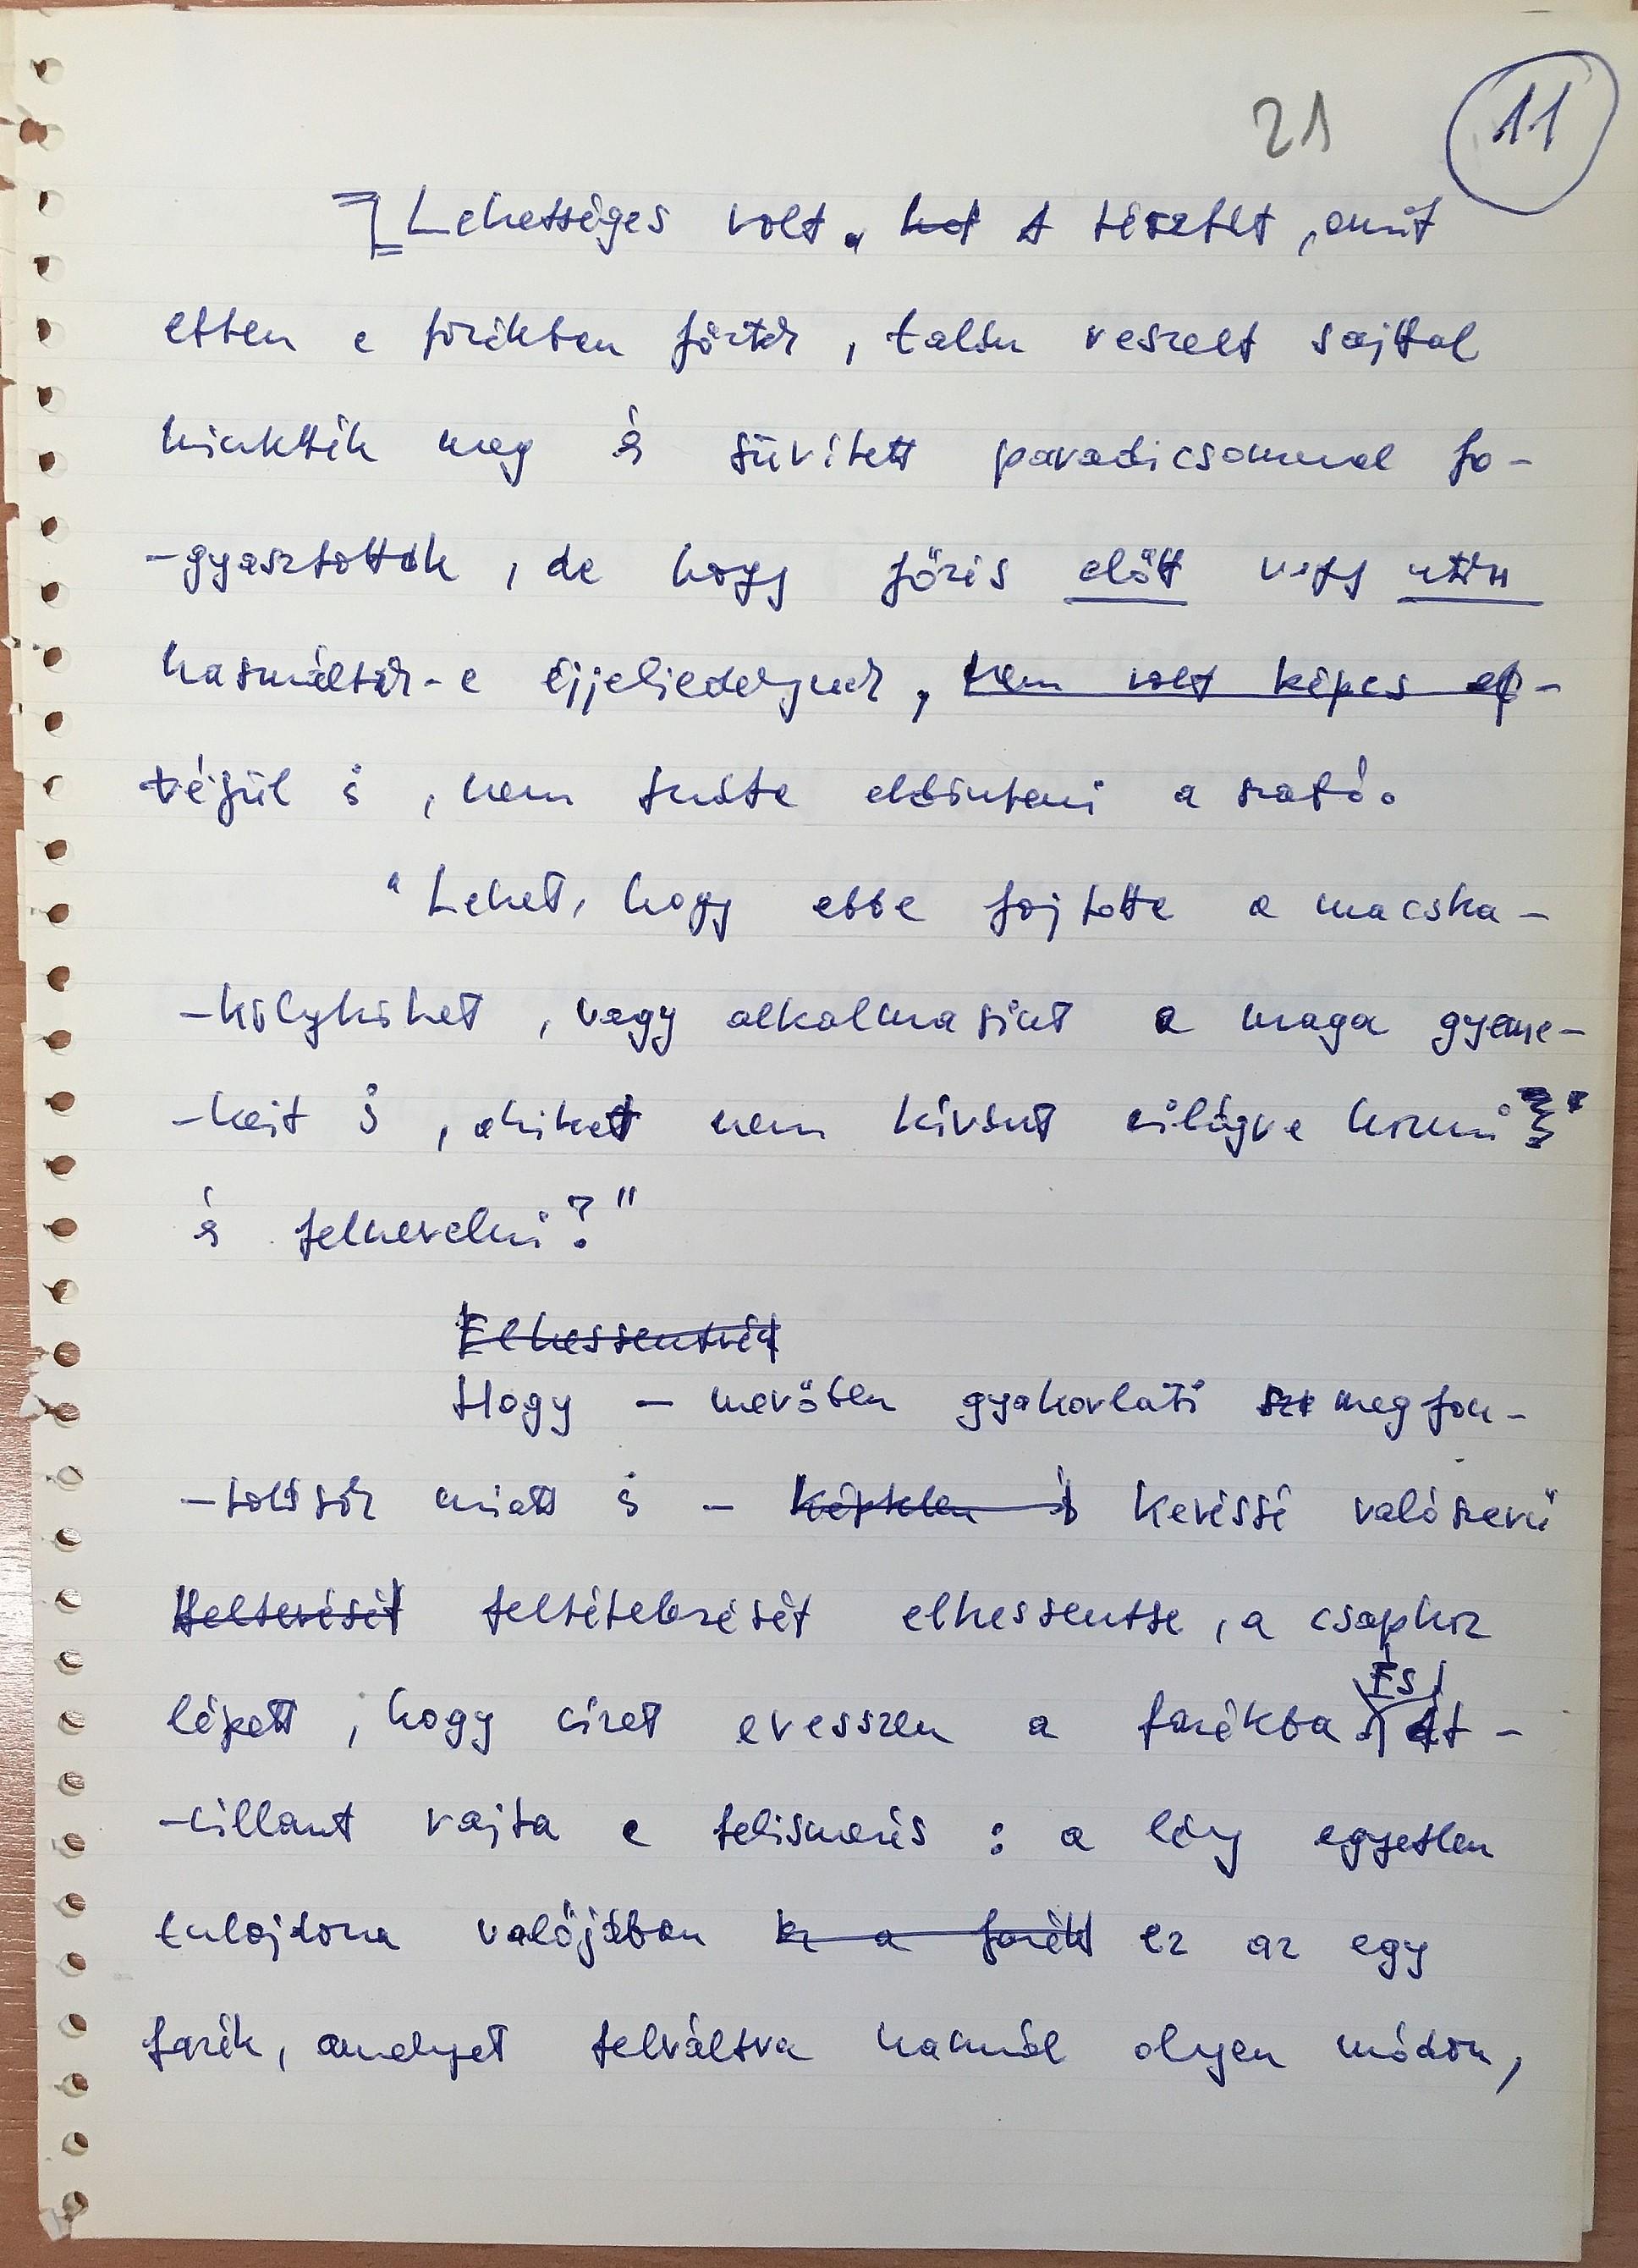 21 11
Lehetséges volt. hot A tésztát, amit
ebben a fazékban főztek, talán reszelt sajttal
hintették meg és sűrített paradicsommal fo-
-gyasztották, de hogy főzés előtt vagy után
használták-e éjjeliedénynek, nem volt képes el-
végül is, nem tudta eldönteni a szabó.
"Lehet, hogy ebbe fojtotta a macska-
-kölyköket, vagy alkalmasint a maga gyerme-
-keit is, akiket nem kívánt világra hozni
és felnevelni?"
Elhessentvén
Hogy – merőben gyakorlati sze megfon-
-tolások miatt is – képtelen és kevéssé valószerű
feltevését feltételezését elhessentse, a csaphoz
lépett, hogy vizet eresszen a fazékba. És át-
-villant rajta a felismerés: a lány egyetlen
tulajdona valójában ez a fazék ez az egy
fazék, amelyet felváltva használ olyan módon,